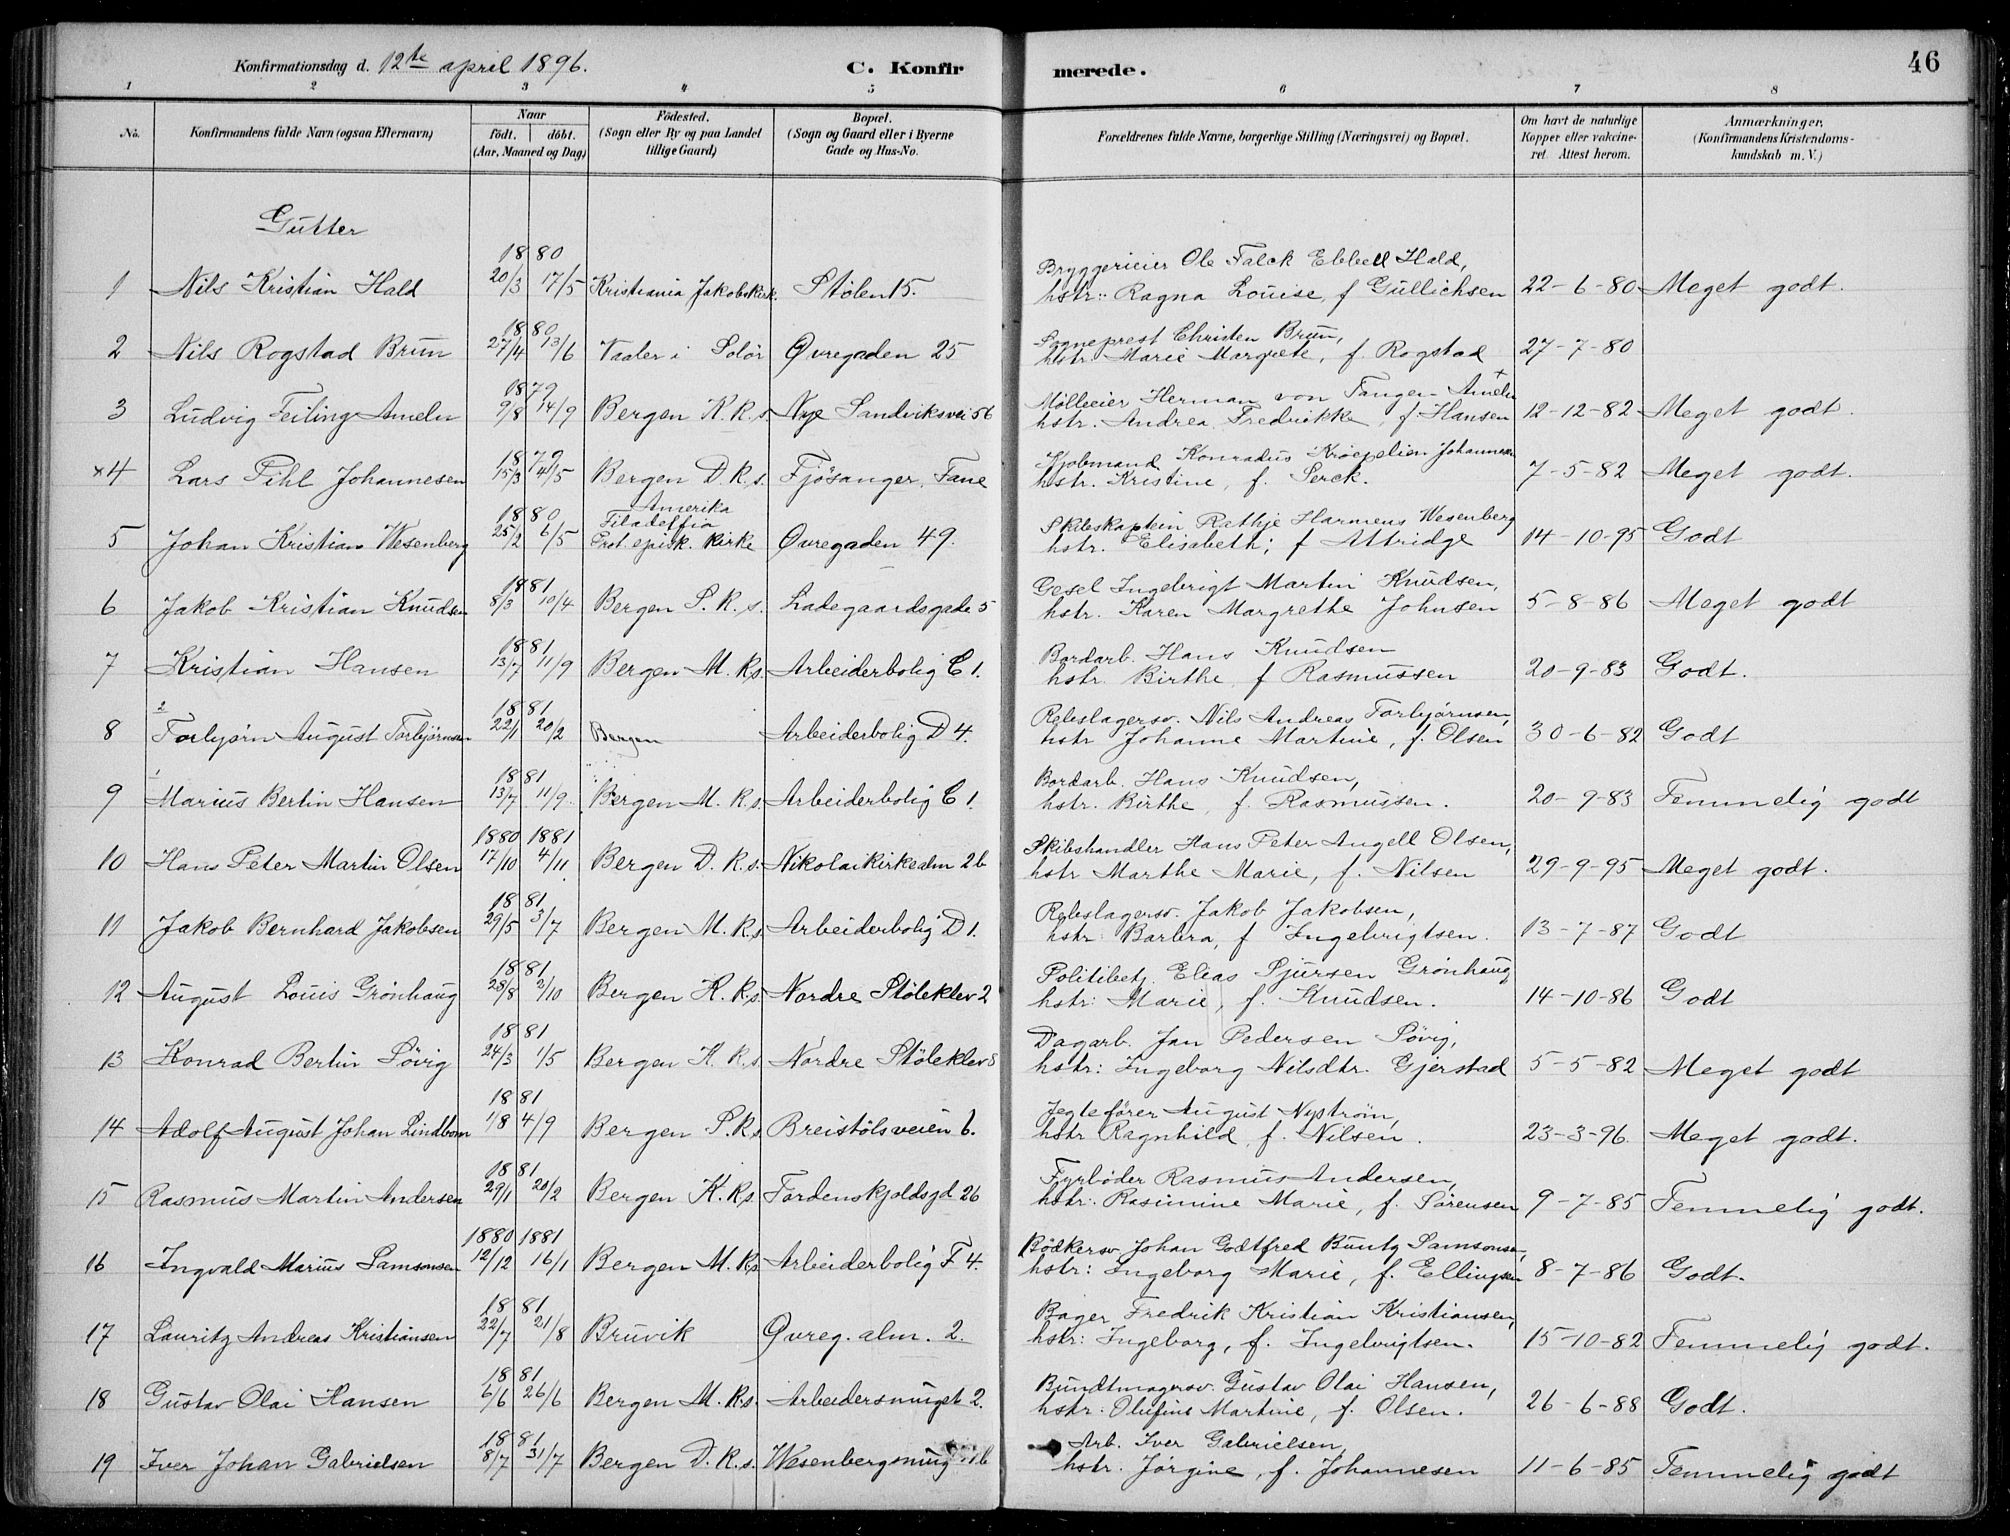 Konfirmationsdag d. 12te april 1896. C. Konfirmerede. 46
1 2 3 4 5 6 7 8
No. Konfirmandens fulde Navn (ogsaa Efternavn) Naar födt. döbt. (Aar, Maaned og Dag) Födested. (Sogn eller By og paa Landet tillige Gaard) Bopæl. (Sogn og Gaard eller i Byerne Gade og Hus-No. Forældrenes fulde Navne, borgerlige Stilling (Næringsvei) og Bopæl. Om havt de naturlige Kopper eller vakcineret. Attest herom. Anmærkninger, (Konfirmandens Kristendomskundskab m. V.)
Gutter
1880 Bryggerieier Ole Falck Ebbell Hald,
1 Nils Kristian Hald 20/3 17/5 Kristiania Jakobskirk. Stølen 15. hstr: Ragna Louise, f Gullichsen 22-6-80 Meget godt.
1880 Sogneprest Christen Brun,
2 Nils Rogstad Brun 27/4 13/6 Vaaler i Solör Øvregaden 25 hstr. Marie Margrete, f. Rogstad 27-7-80
1879 Mölleeier Herman von Tangen Ameln
3 Ludvig Feiling Ameln 9/8 14/9 Bergen K.K.s. Nye Sandviksvei 56 hstr. Andrea Fredrikke, f. Hansen 12-12-82 Meget godt.
1879 Kjøbmand Konradus Krøepelien Johannesen
×4 Lars Pihl Johannesen 15/3 4/5 Bergen D.K.s. Fjösanger, Fane hstr. Kristine, f. Serck. 7-5-82 Meget godt.
1880 Amerika Skibskaptein Rathje Harmens Wesenberg
5 Johan Kristian Wesenberg 25/2 6/5 Filadelfia Prot. episk. Kirke Øvregaden 49. hstr. Elisabeth, f Attridge 14-10-95 Godt
1881 Gesel Ingebrigt Martin Knudsen,
6 Jakob Kristian Knudsen 8/3 10/4 Bergen S.K.s. Ladegaardsgade 5 hstr. Karen Margrethe Johnsen 5-8-86 Meget godt
1881 Bordarb. Hans Knudsen
7 Kristian Hansen 13/7 11/9 Bergen M.Ks. Arbeiderbolig C 1. hstr. Birthe f Rasmussen 20-9-83 Godt.
2 1881 Rebslagersv. Nils Andreas Torbjørnsen,
8 Torbjørn August Torbjørnsen 22/1 20/2 Bergen Arbeiderbolig D 4. hstr Johanne Martine, f. Olsen 30-6-82 Godt
1 1881 Bordarb. Hans Knudsen,
9 Marius Bertin Hansen 13/7 11/9 Bergen M.K.s. Arbeiderbolig C 1. hstr. Birthe, f. Rasmussen. 20-9-83 Temmelig godt
1880 1881 Skibshandler Hans Peter Angell Olsen,
10 Hans Peter Martin Olsen 17/10 4/11 Bergen D.K.s. Nikolaikirkealm 2b hstr Marthe Marie, f. Nilsen 29-9-95 Meget godt.
1881 Rebslagersv. Jakob Jakobsen,
11 Jakob Bernhard Jakobsen 29/5 3/7 Bergen M.K.s. Arbeiderbolig D 1. hstr: Barbra, f Ingebrigtsen. 13-7-87 Godt
1881 Politibetj. Elias Sjursen Grønhaug
12 August Louis Grønhaug 28/8 2/10 Bergen K.K.s. Nordre Støleklev 2 hstr: Marie, f. Knudsen. 14-10-86 Godt
1881 Dagarb. Jan Pedersen Søvig,
13 Konrad Bertin Søvig 24/3 1/5 Bergen K.K.s. Nordre Stöleklev 8 hstr: Ingeborg Nilsdtr. Gjerstad 5-5-82 Meget godt
1881 Jegtefører August Nyström,
14 Adolf August Johan Lindbom 1/8 4/9 Bergen S.K.s. Breistölsveien 6. hstr Ragnhild f. Nilsen. 23-3-96 Meget godt.
1881 Fyrbøder Rasmus Andersen,
15 Rasmus Martin Andersen 29/1 20/2 Bergen K.K.s. Tordenskjoldsgd 26 hstr. Rasimine Marie, f. Sørensen 9-7-85 Temmelig godt.
1880 1881 Bödkersv Johan Godtfred Buntz Samsonsen,
16 Ingvald Marius Samsonsen 12/12 16/1 Bergen M.K.s Arbeiderbolig F 4. hstr: Ingeborg Marie, f. Ellingsen 8-7-86 Godt.
1881 Bager Fredrik Kristian Kristiansen,
17 Lauritz Andreas Kristiansen 22/7 21/8 Bruvik Øvreg. alm. 2. hstr: Ingeborg, f. Ingebrigtsen. 15-10-82 Temmelig godt.
1881 Bundtmagersv. Gustav Olai Hansen,
18 Gustav Olai Hansen 6/6 26/6 Bergen M.K.s. Arbeidersmuget 2. hstr: Olufine Martine, f. Olsen. 26-6-88 Godt.
1881 Arb. Iver Gabrielsen,
19 Iver Johan Gabrielsen 8/7 31/7 Bergen D.K.s. Wesenbergsmug hstr. Jørgine, f. Johannesen 11-6-85 Temmelig godt